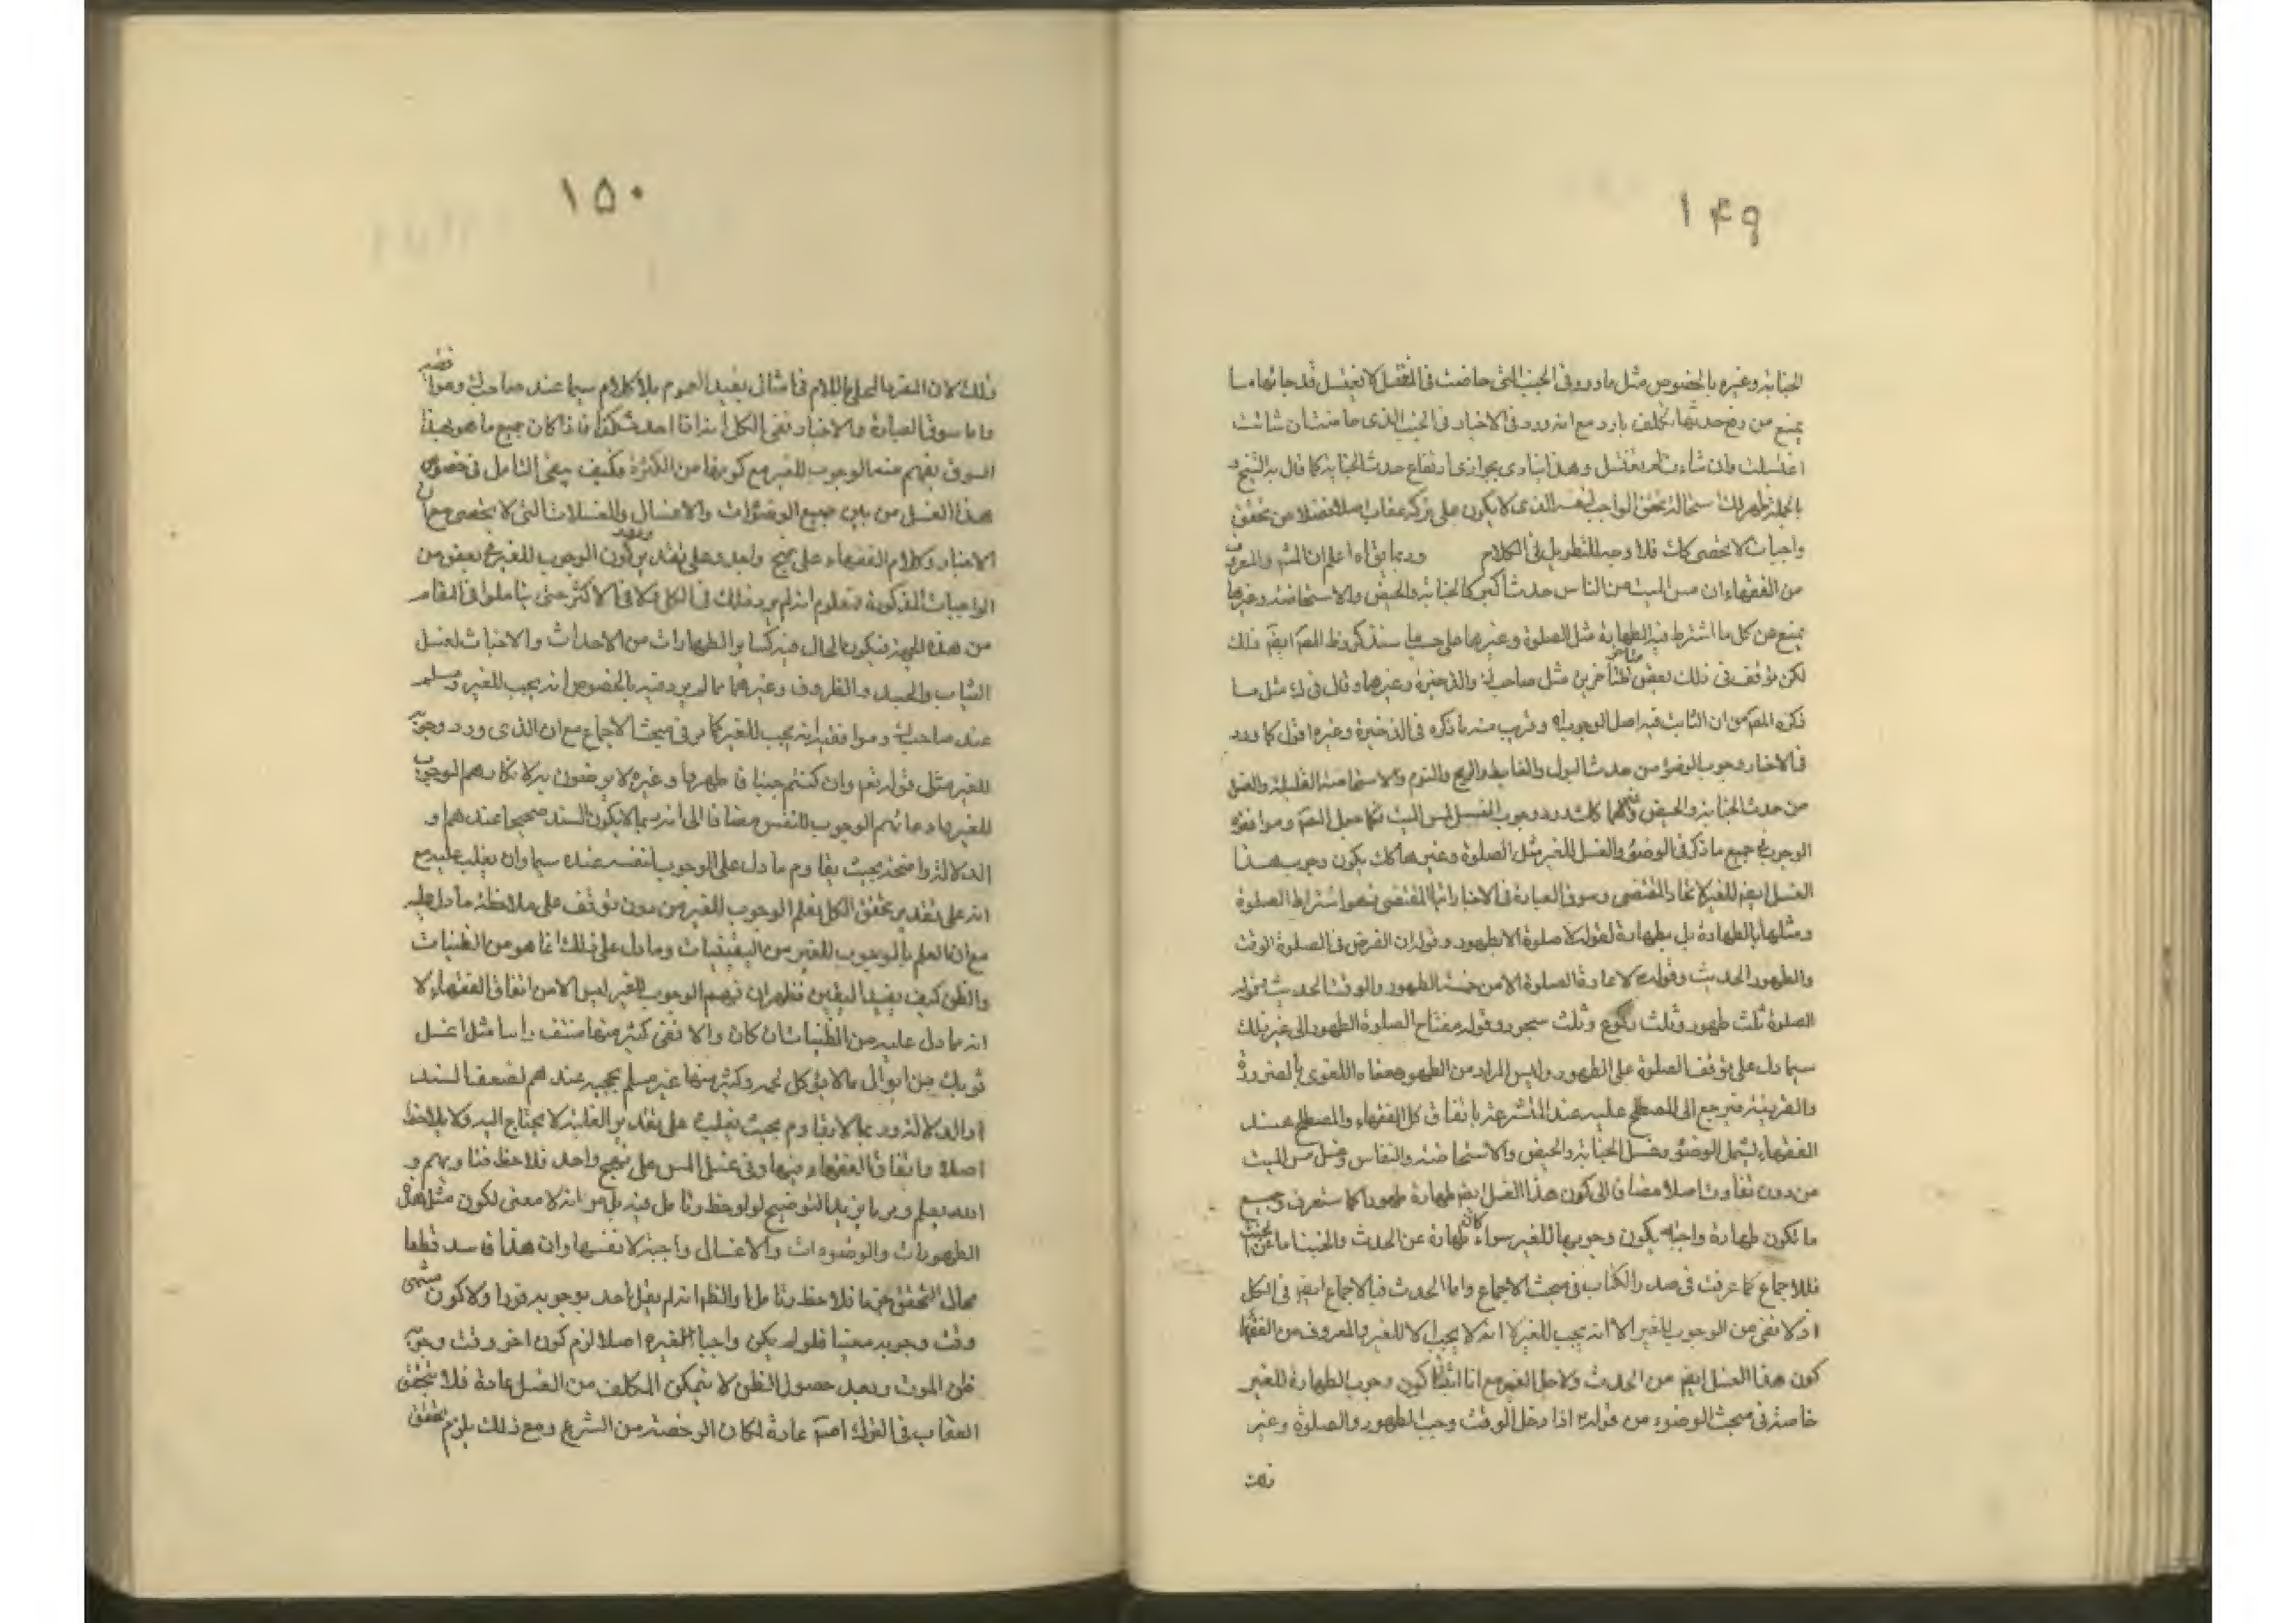 ۱۴۹
الجنابة وغيره بالخصوص مثل ما ورد في الجنب التي حاضت في المغتسل لا تغتسل قد جائها ما
يمنع من رفع حدثها تكلف بارد مع انه ورد في الاخبار في الجنب الذي حاضت ان شائت
اغتسلت وان شاءت لم تغتسل وهذا ينادي بجواز ارتفاع حدث الجنابة كما قال به الشيخ و
بالجملة ظهر لك استحالة تحقق الواجب لنفسه الذي لا يكون على تركه عقاب اصلا فضلا من تحقق
واجبات لا تحصى كك فلا وجه للتطويل في الكلام وربما بقاه اعلم ان المشهور والمعروف
من الفقهاء ان مس الميت من الناس حدث اكبر كالجنابة والحيض والاستحاضة وغيرها
يمنع من كل ما اشترط فيه الطهارة مثل الصلوة وغيرها على حسب ما سنذكر وظ المصـ ايضـ ذلك
لكن توقف في ذلك بعض متأخري المتأخرين مثل صاحب ك والذخيرة وغيرهما وقال في ك مثل ما
ذكره المصـ من ان الثابت فيه اصل الوجوب اه وقريب منه ما ذكره في الذخيرة وغيره اقول كما ورد
في الاخبار وجوب الوضوء من حدث البول والغايط والريح والنوم والاستحاضة القليلة والغسل
من حدث الجنابة والحيض وغيرهما كك ورد وجوب الغسل لمس الميت فكما حمل المصـ وموافقوه
الوجوب في جميع ما ذكر في الوضوء والغسل للغير مثل الصلوة وغيرها كك يكون وجوب هذا
الغسل ايضـ للغير لاتحاد المقتضى وسوق العبارة في الاخبار اما المقتضى فهو اشتراط الصلوة
ومثلها بالطهارة بل بطهارة لقوله لا صلوة الا بطهور وقوله ان الفرض في الصلوة الوقت
والطهور الحديث وقوله لا تعاد الصلوة الا من خمسة الطهور والوقت الحديث وقوله
الصلوة ثلث طهور وثلث ركوع وثلث سجود وقوله مفتاح الصلوة الطهور الى غير ذلك
مما دل على توقف الصلوة على الطهور وليس المراد من الطهور معناه اللغوي بالضرورة
والقرينة فيرجع الى المصطلح عليه عند المتشرعة باتفاق كل الفقهاء والمصطلح عند
الفقهاء يشمل الوضوء وغسل الجنابة والحيض والاستحاضة والنفاس وغسل مس الميت
من دون تفاوت اصلا مضافا الى كون هذا الغسل ايضـ طهارة طهورا كما ستعرف وجميع
ما تكون طهارة واجبة يكون وجوبها للغير سواء كان طهارة عن الحدث والخبث اما عن الخبث
فللاجماع كما عرفت في صدر الكتاب في مبحث الاجماع واما الحدث فبالاجماع ايضـ في الكل
اذ لا نعني من الوجوب للغير الا انه يجب للغير لا انه لا يجب الا للغير والمعروف من الفقهاء
كون هذا الغسل ايضـ من الحدث ولاجل الغير مع انا اثبتنا كون وجوب الطهارة للغير
خاصة في مبحث الوضوء من قوله اذا دخل الوقت وجب الطهور والصلوة وغير
ذلك
۱۵۰
ذلك لان المفرد المحلى باللام في امثاله يفيد العموم بلا كلام سيما عند صاحب ك وموافقيه
واما سوق العبارة والاخبار ففي الكل انه اذا احدث كذا فاذا كان جميع ما هو بهذا
السوق يفهم منه الوجوب للغير مع كونها من الكثرة فكيف يبقى التأمل في خصوص
هذا الغسل من بين جميع الوضوءات والاغسال والغسلات التي لا تحصى مع ان
الاخبار وكلام الفقهاء على نهج واحد وعلى تقدير ورود كون الوجوب للغير في بعض من
الواجبات المذكورة فمعلوم انه لم يرد ذلك في الكل ولا في الاكثر حتى يتاملوا في المقام
من هذه الجهة فيكون الحال فيه كساير الطهارات من الاحداث والاخباث لغسل
الثياب والجسد والظروف وغيرهما مما لم يرد فيه بالخصوص انه يجب للغير ومسلم
عند صاحب ك وموافقيه انه يجب للغير كما مر في مبحث الاجماع مع ان الذي ورد وجوبه
للغير مثل قوله تعم وان كنتم جنبا فاطهروا وغيره لا يرضون به لانكارهم الوجوب
للغير وادعائهم الوجوب للنفس مضافا الى انه ربما لا يكون السند صحيحا عندهم و
الدلالة واضحة بحيث يقاوم ما دل على الوجوب لنفسه عنده سيما وان يغلب عليه مع
انه على تقدير تحقق الكل يعلم الوجوب للغير من دون توقف على ملاحظة ما دل عليه
مع ان العلم بالوجوب للغير من اليقينيات وما دل على ذلك انما هو من الظنيات
والظن كيف يفيد اليقين فظهر ان فهم الوجوب للغير ليس الا من اتفاق الفقهاء لا
انه مما دل عليه من الظنيات ان كان والا ففي كثير منها منتف راسا مثل اغسل
ثوبك من ابوال ما لا يؤكل لحمه وكثير منها غير مسلم حجيته عندهم لضعف السند
او الدلالة وربما لا يقاوم بحيث يغلب على تقدير الغلبة لا يحتاج اليه ولا يلاحظ
اصلا واتفاق الفقهاء فيها وفي غسل المس على نهج واحد فلاحظ فتاويهم و
الله يعلم ومما يزيد التوضيح لو لوحظ وتأمل فيه بل هو انه لا معنى لكون مثل هذه
الطهورات والوضوءات والاغسال واجبة لانفسها وان هذا فاسد قطعا
محال التحقق جزما فلاحظ وتأمل والظ انه لم يقل احد بوجوبه فورا ولا كون منتهى
وقت وجوبه معينا فلو لم يكن واجبا لغيره اصلا لزم كون اخر وقت وجوبه
ظن الموت وبعد حصول الظن لا يتمكن المكلف من الغسل عادة فلا يتحقق
العقاب في الترك عادة لمكان الرخصة من الشرع ومع ذلك يلزم تحقق